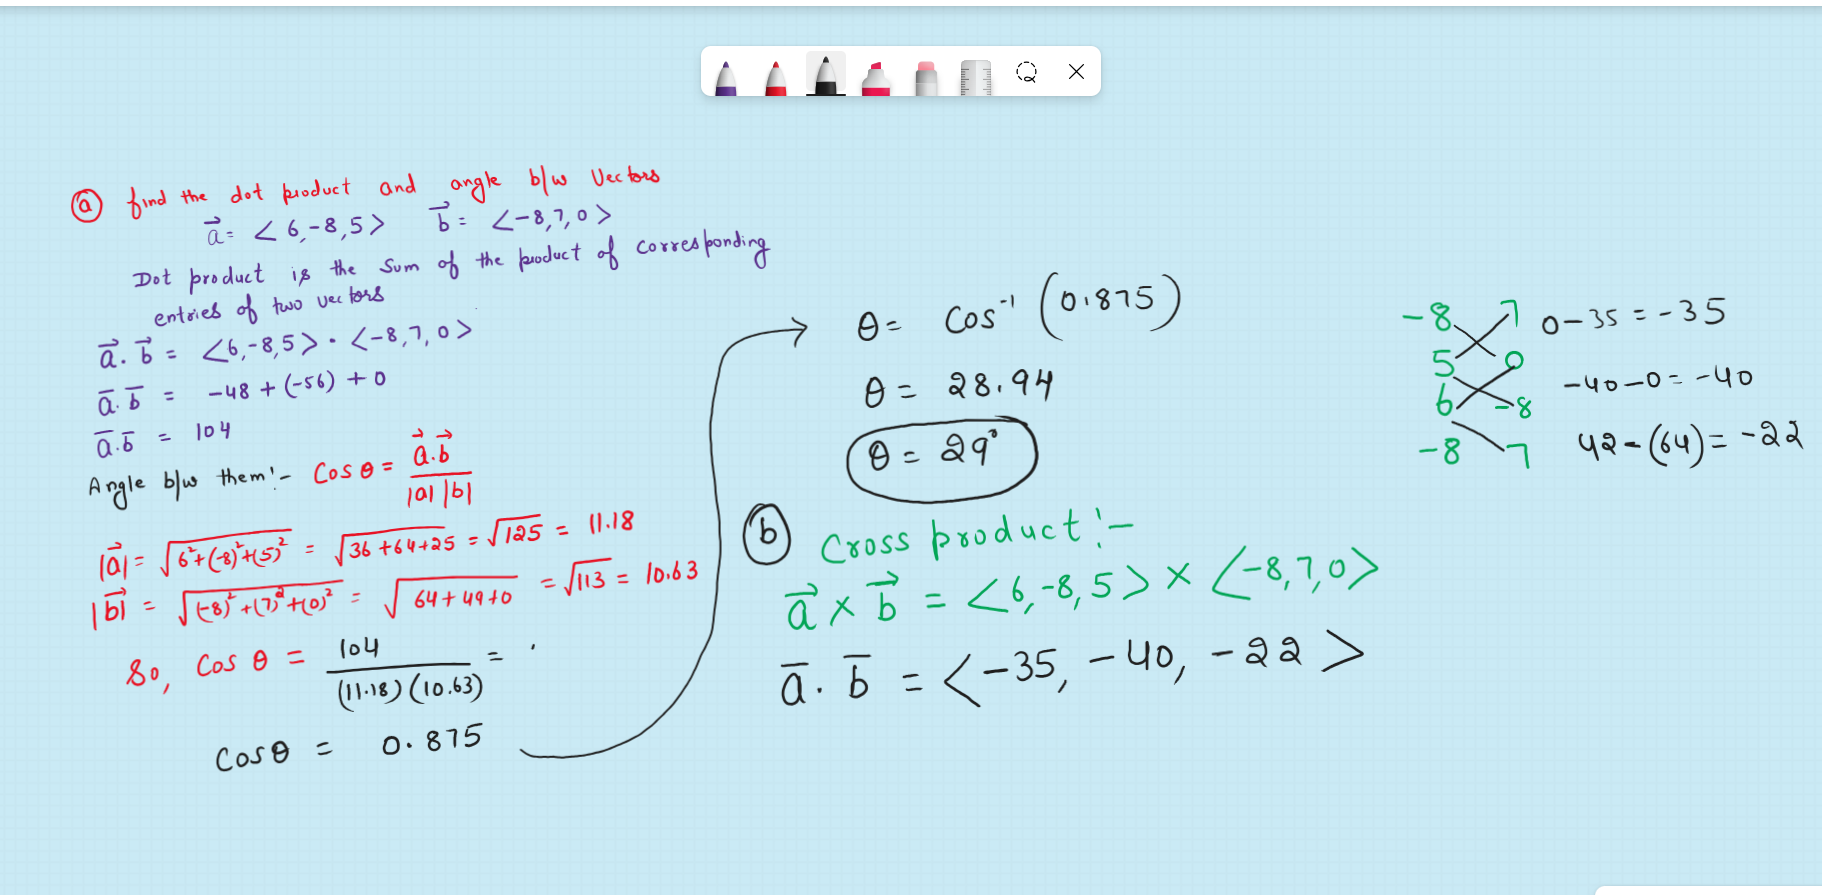 ⓐ find the dot product and angle b/w Vectors
a⃗ = < 6, -8, 5 >   b⃗ = < -8, 7, 0 >
Dot product is the sum of the product of corresponding
entries of two vectors
a⃗ . b⃗ = < 6, -8, 5 > . < -8, 7, 0 >
a̅ . b̅ = -48 + (-56) + 0
a̅ . b̅ = 104
Angle b/w them!- Cos θ = a⃗ . b⃗ / |a| |b|
|a⃗| = √(6² + (-8)² + (5)²) = √(36 + 64 + 25) = √125 = 11.18
|b⃗| = √((-8)² + (7)² + (0)²) = √(64 + 49 + 0) = √113 = 10.63
So, Cos θ = 104 / (11.18) (10.63) =
Cos θ = 0.875
θ = Cos⁻¹ (0.875)
θ = 28.94
θ = 29°
ⓑ Cross product!-
a⃗ × b⃗ = < 6, -8, 5 > × < -8, 7, 0 >
a̅ . b̅ = < -35, -40, -22 >
-8 7 0 - 35 = -35
5 0
-40 - 0 = -40
6 -8
42 - (64) = -22
-8 7